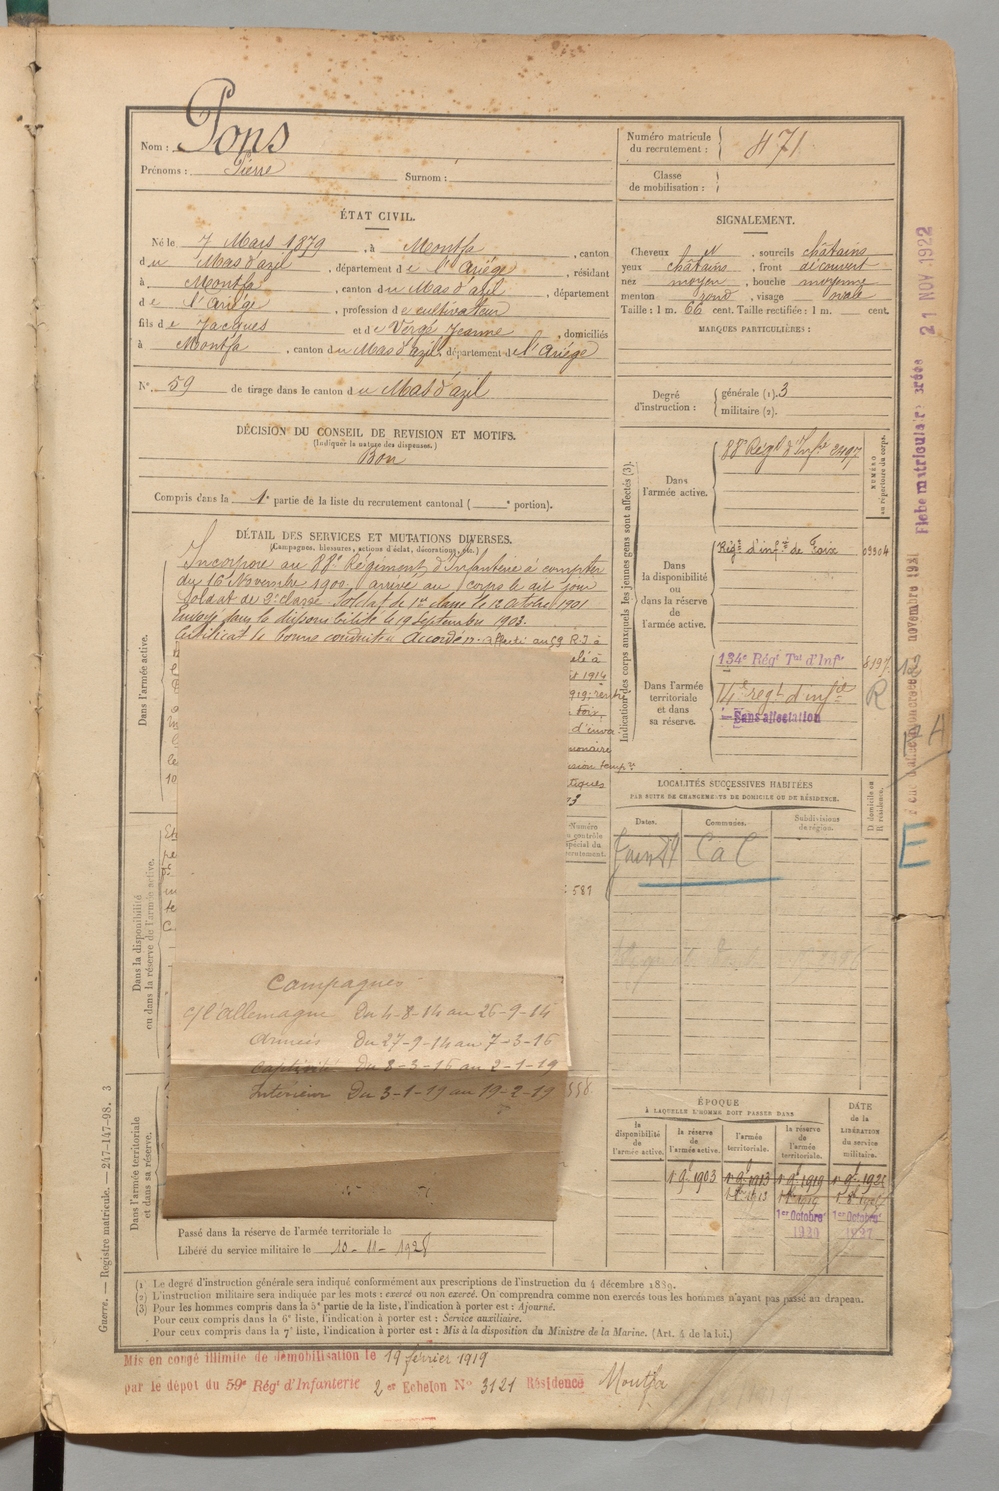 Nom : Pons
Prénoms : Pierre Surnom :
Numéro matricule du recrutement : 471
Classe de mobilisation :
ÉTAT CIVIL.
Né le 7 Mars 1879, à Montfa, canton
du Mas d'azil, département de l'Ariége, résidant
à Montfa, canton du Mas d'azil, département
de l'Ariége, profession de cultivateur
fils de Jacques et de Vergé Jeanne, domiciliés
à Montfa, canton du Mas d'azil, département de l'Ariége
N° 59 de tirage dans le canton du Mas d'azil
SIGNALEMENT.
Cheveux et, sourcils châtains
yeux châtains, front découvert
nez moyen, bouche moyenne
menton rond, visage ovale
Taille : 1 m. 66 cent. Taille rectifiée : 1 m. cent.
MARQUES PARTICULIÈRES :
Degré d'instruction : générale (1). 3
militaire (2).
DÉCISION DU CONSEIL DE REVISION ET MOTIFS.
(Indiquer la nature des dispenses.)
Bon
Compris dans la 1e partie de la liste du recrutement cantonal ( e portion).
DÉTAIL DES SERVICES ET MUTATIONS DIVERSES.
(Campagnes, blessures, actions d'éclat, décorations, etc.)
Dans l'armée active.
Incorporé au 88e Régiment d'Infanterie à compter
du 16 Novembre 1900. arrivé au corps le dit jour
Soldat de 2e classe. Soldat de 1re classe le 12 octobre 1901
Envoyé dans la disponibilité le 19 Septembre 1903.
Certificat de bonne conduite Accordé. au 59 R.I à
1914
1919, rentré
Foix,
d'inva
sion temp
Dans la disponibilité ou dans la réserve de l'armée active.
Numéro
contrôle
spécial du
recrutement.
581
Campagnes
c/ l'Allemagne Du 4-8-14 au 26-9-14
Armées Du 27-9-14 au 7-3-16
Captivité Du 8-3-16 au 2-1-19
Intérieur Du 3-1-19 au 19-2-19
558
Dans l'armée territoriale et dans sa réserve.
Passé dans la réserve de l'armée territoriale le
Libéré du service militaire le 10-11-1928
Indication des corps auxquels les jeunes gens sont affectés (3).
NUMÉRO au répertoire du corps.
Dans l'armée active.
88e Régt d'Infrie 2497
Dans la disponibilité ou dans la réserve de l'armée active.
Régt d'infrie de Foix 03304
Dans l'armée territoriale et dans sa réserve.
134e Régt Tal d'Infie 8197
14e regt d'infie R
Sans affectation
LOCALITÉS SUCCESSIVES HABITÉES
PAR SUITE DE CHANGEMENTS DE DOMICILE OU DE RÉSIDENCE.
Dates. Communes. Subdivisions de région. D domicile ou R résidence.
CaC
E
ÉPOQUE
À LAQUELLE L'HOMME DOIT PASSER DANS
la disponibilité de l'armée active. la réserve de l'armée active. l'armée territoriale. la réserve de l'armée territoriale. DATE de la LIBÉRATION du service militaire.
1 9 1903 1 9 1913 1 9 1919
1er Octobre 1er Octobre
Fiche matriculaire créée 21 NOV 1922
Guerre. — Registre matricule. — 247-147-98. 3
(1) Le degré d'instruction générale sera indiqué conformément aux prescriptions de l'instruction du 4 décembre 1889.
(2) L'instruction militaire sera indiquée par les mots : exercé ou non exercé. On comprendra comme non exercés tous les hommes n'ayant pas passé au drapeau.
(3) Pour les hommes compris dans la 5e partie de la liste, l'indication à porter est : Ajourné.
Pour ceux compris dans la 6e liste, l'indication à porter est : Service auxiliaire.
Pour ceux compris dans la 7e liste, l'indication à porter est : Mis à la disposition du Ministre de la Marine. (Art. 4 de la loi.)
Mis en congé illimité de démobilisation le 19 février 1919
par le dépôt du 59e Régt d'Infanterie 2e Echelon N° 3121 Résidence Montfa